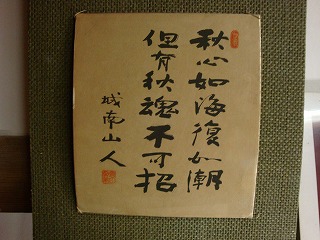 秋心如海復如潮
但有秋魂不可招
城南山人